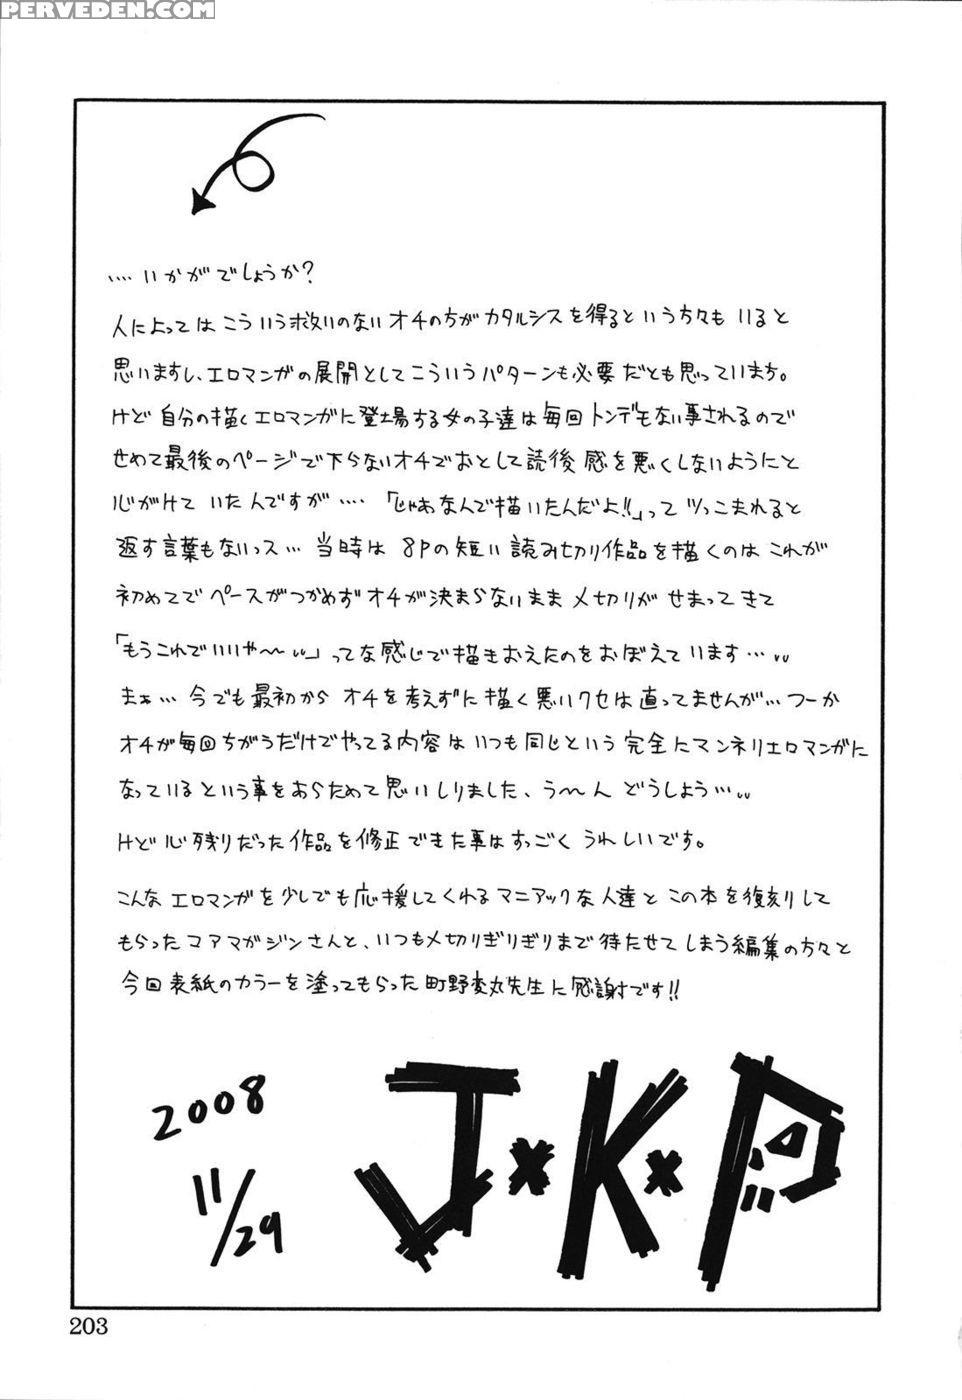 PERVEDEN.COM
....いかがでしょうか?
人によってはこういう救いのないオチの方がカタルシスを得るという方々もいると
思いますし、エロマンガの展開としてこういうパターンも必要だとも思っています。
けど自分の描くエロマンガに登場する女の子達は毎回トンデもない事されるので
せめて最後のページで下らないオチでおとして読後感を悪くしないようにと
心がけていたんですが....「じゃあなんで描いたんだよ!!」ってツっこまれると
返す言葉もないっス...当時は8Pの短い読み切り作品を描くのはこれが
初めてでペースがつかめずオチが決まらないままメ切りがせまってきて
「もうこれでいいや〜〜」ってな感じで描きおえたのをおぼえています...
まぁ...今でも最初からオチを考えずに描く悪いクセは直ってませんが...つーか
オチが毎回ちがうだけでやってる内容はいつも同じという完全にマンネリエロマンガに
なっているという事をあらためて思いしりました、う〜〜んどうしよう...
けど心残りだった作品を修正できた事はすっごくうれしいです。
こんなエロマンガを少しでも応援してくれるマニアックな人達とこの本を復刻して
もらったコアマガジンさんと、いつもメ切りぎりぎりまで待たせてしまう編集の方々と
今回表紙のカラーを塗ってもらった町野変丸先生に感謝です!!
2008
11/29
J×K×P
203